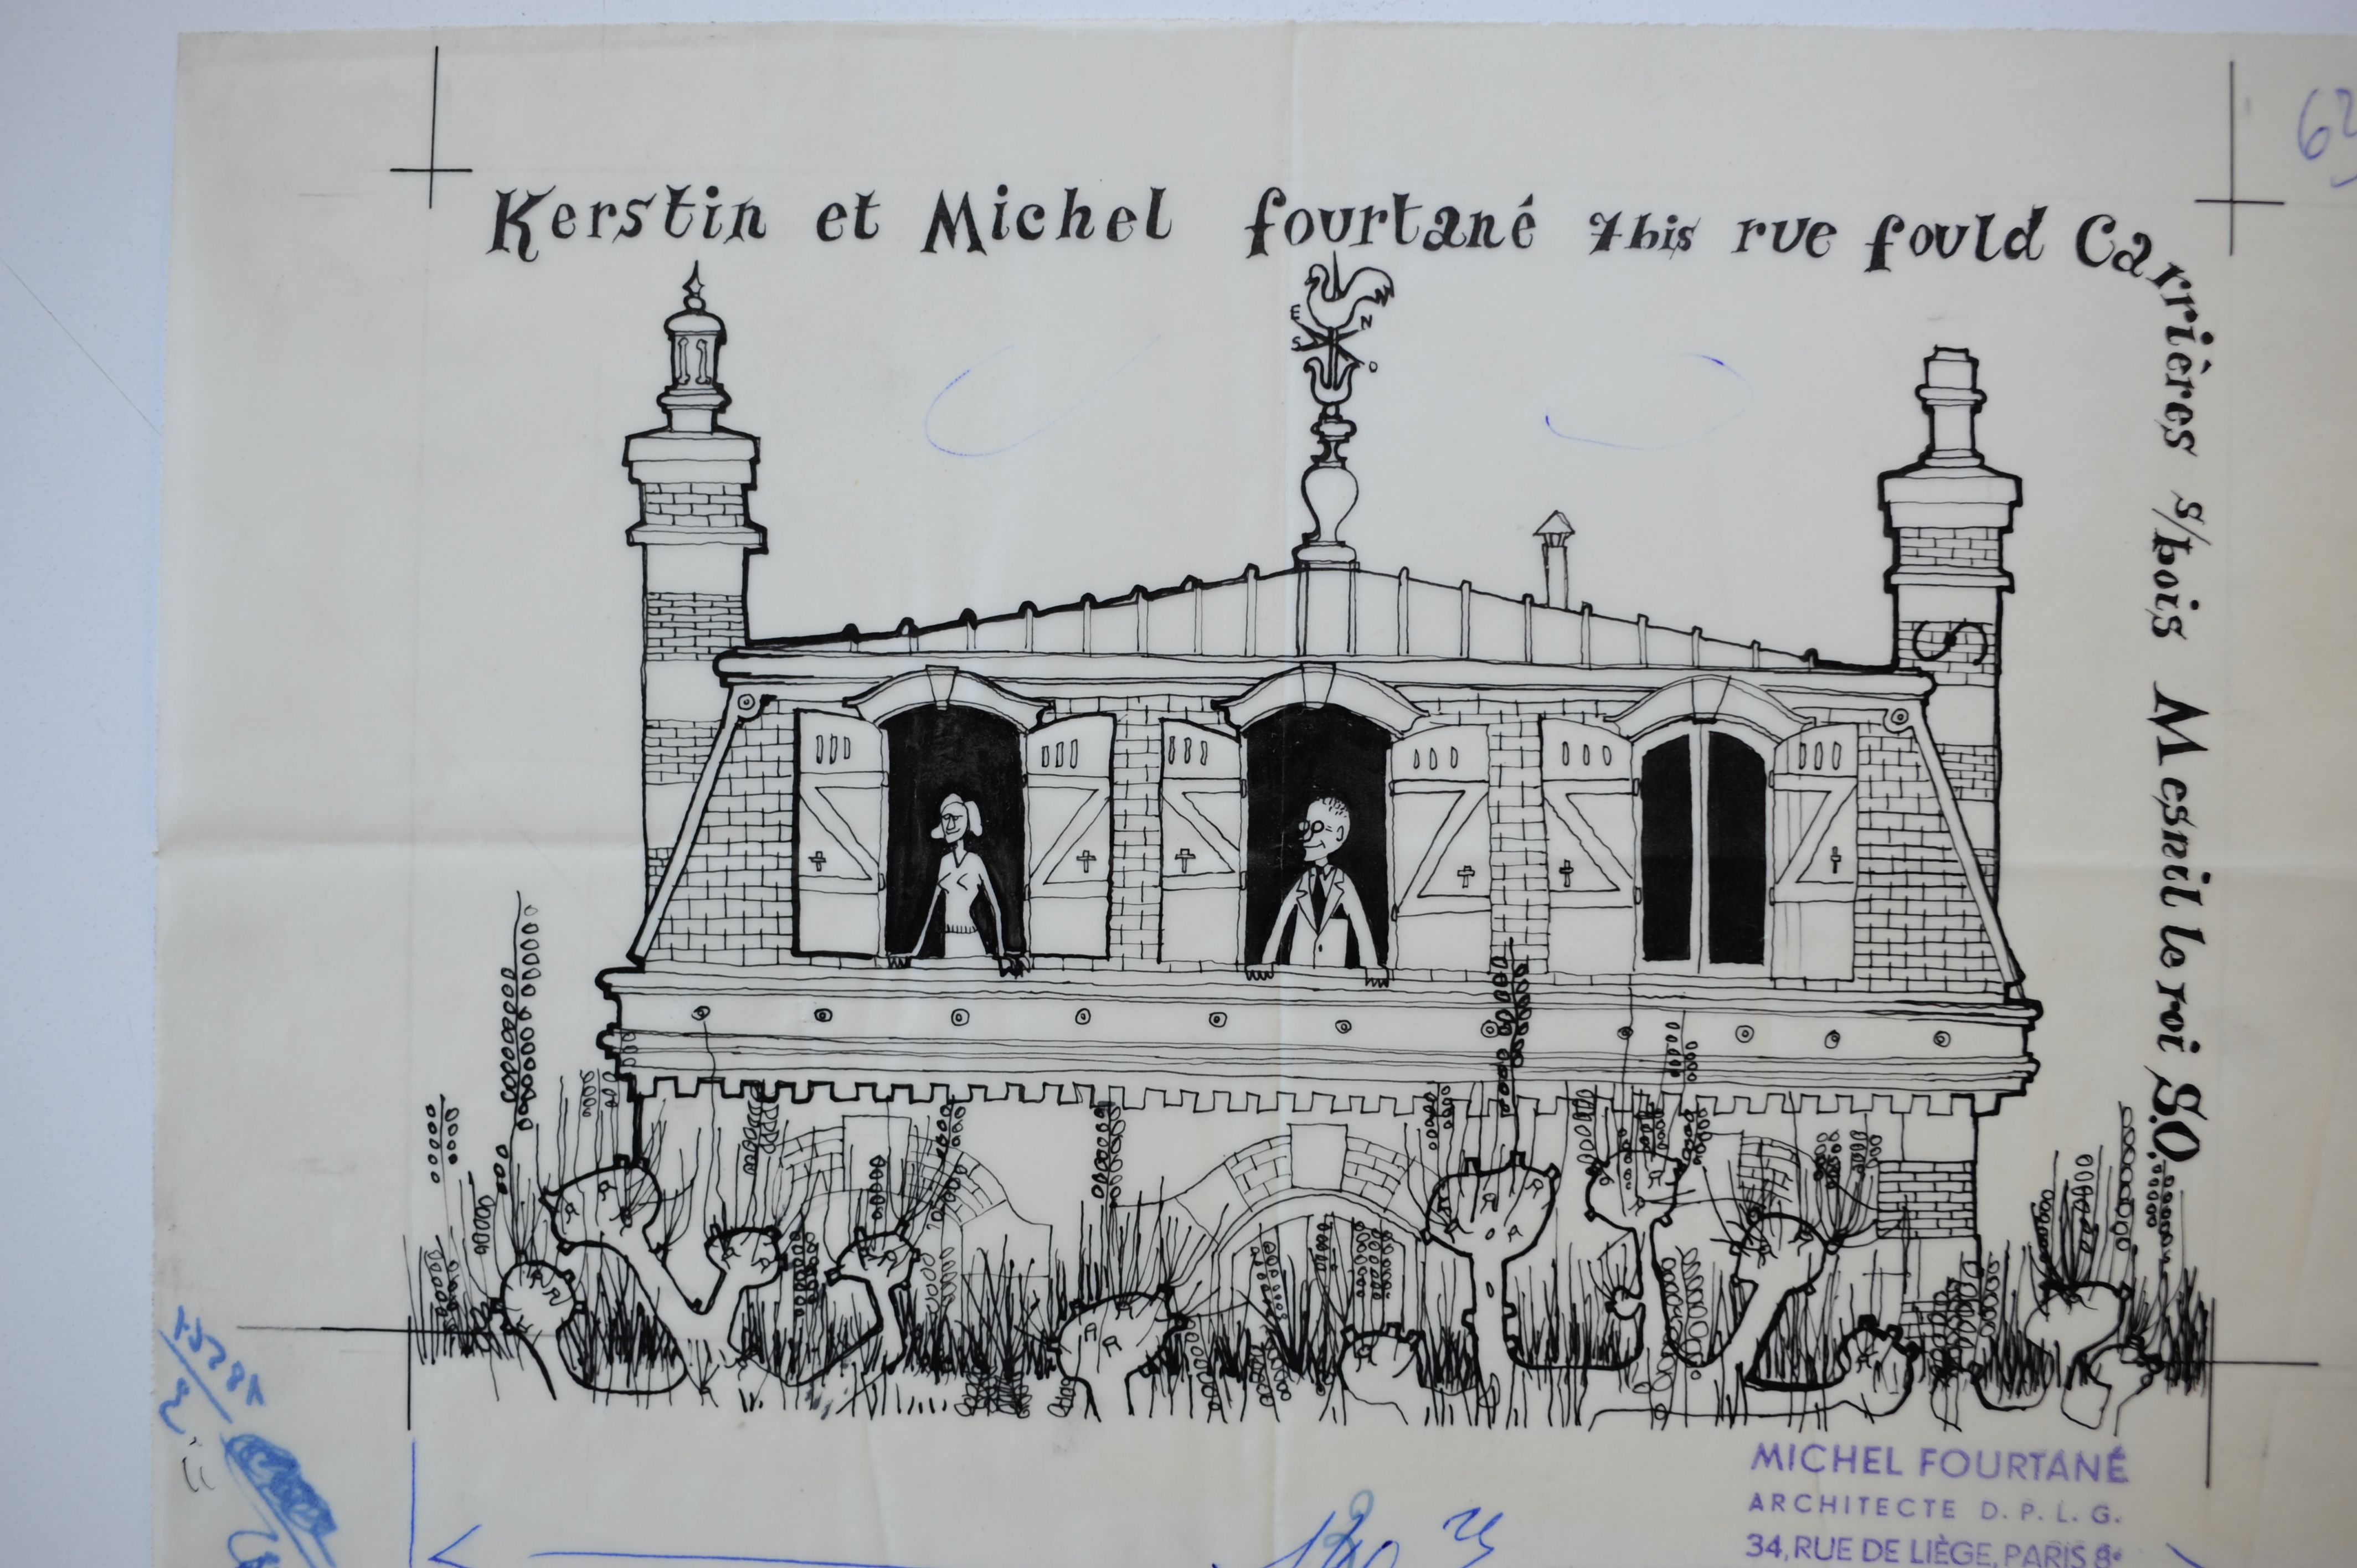 Kerstin et Michel fourtané 7bis rue fould Carrières s/bois Mesnil le roi S.O.
E
N
S
O
MICHEL FOURTANÉ
ARCHITECTE D. P. L. G.
34, RUE DE LIÈGE, PARIS 8e